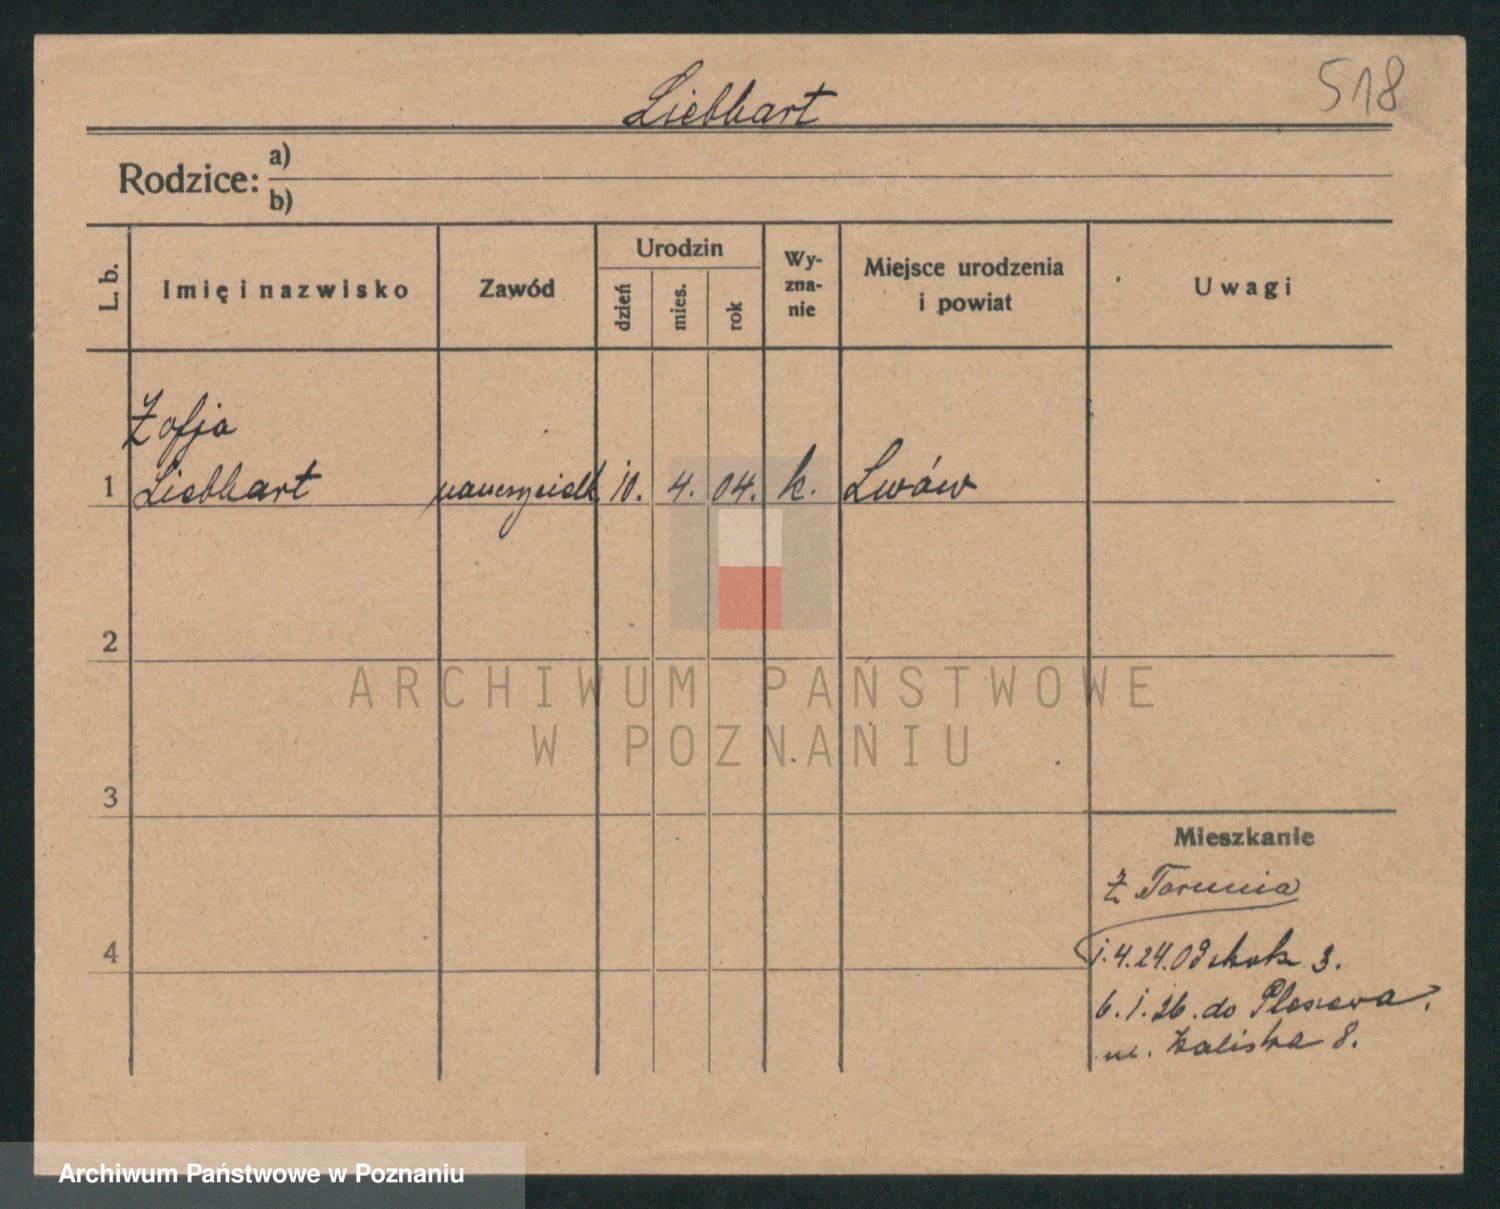 518
Liebhart
Rodzice: a)
b)
L. b.
Imię i nazwisko
Zawód
Urodzin
dzień
mies.
rok
Wy-
zna-
nie
Miejsce urodzenia
i powiat
Uwagi
Zofja
1 Liebhart nauczycielk. 10. 4. 04. k. Lwów
2
ARCHIWUM PAŃSTWOWE
W POZNANIU
3
Mieszkanie
z Torunia
4
1.4.24. 3.
6.1.26. do Pleszewa.
ul. Kaliska 8.
Archiwum Państwowe w Poznaniu